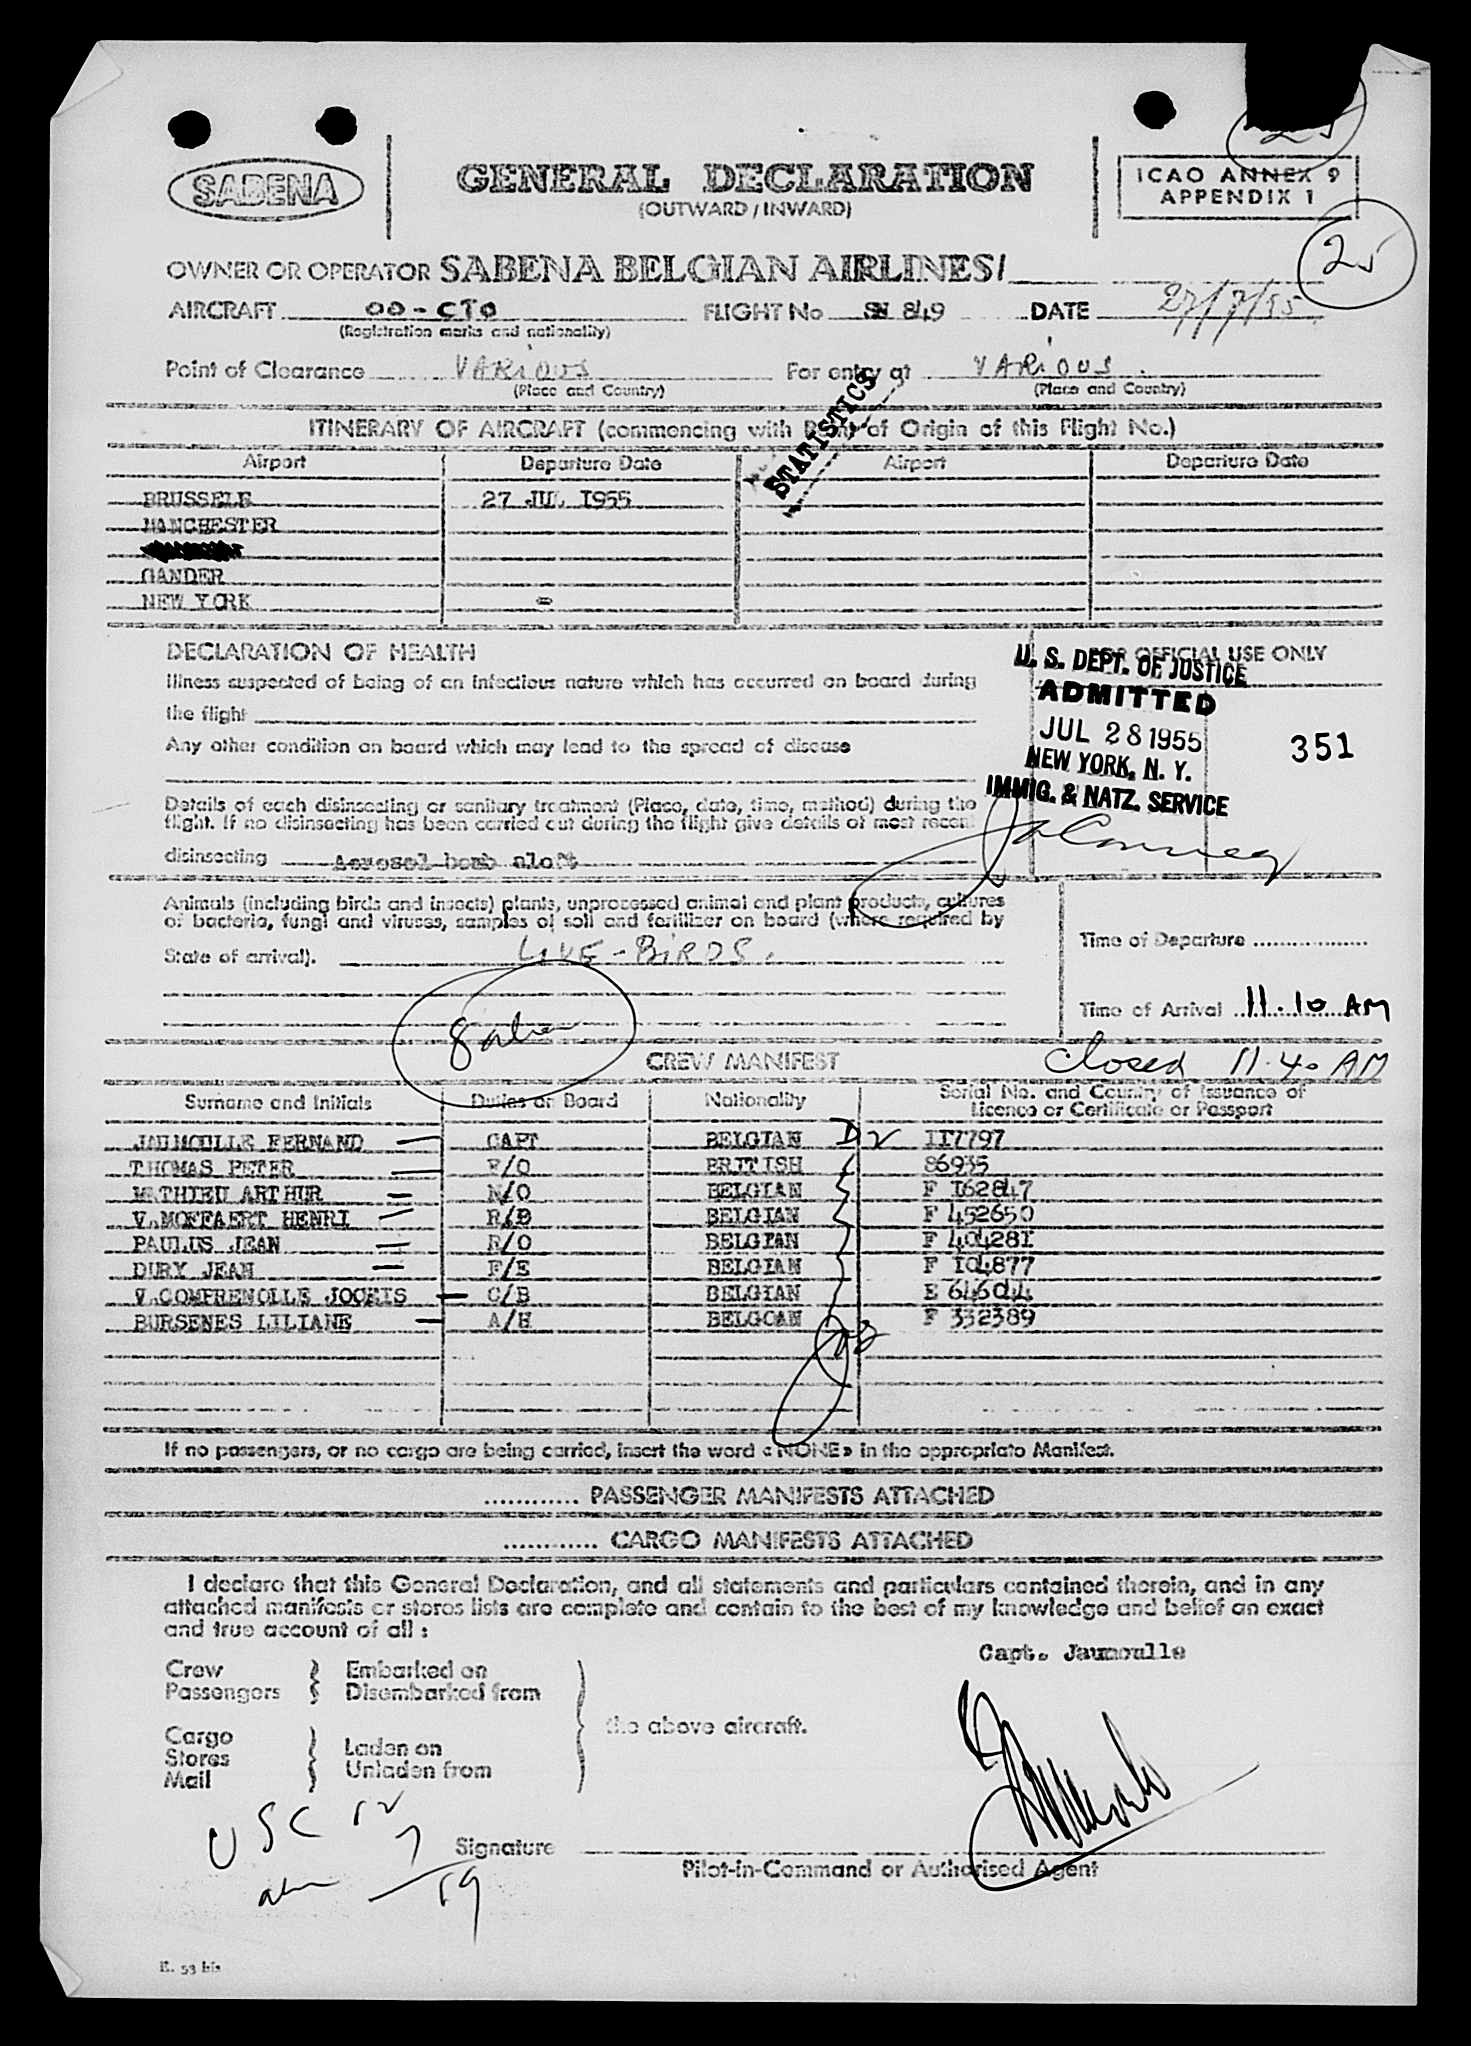 SABENA
GENERAL DECLARATION
(OUTWARD / INWARD)
ICAO ANNEX 9
APPENDIX 1
25
25
OWNER OR OPERATOR SABENA BELGIAN AIRLINES/
AIRCRAFT OO-CTO FLIGHT No SN 849 DATE 27/7/55
(Registration marks and nationality)
Point of Clearance VARIOUS For entry at VARIOUS.
(Place and Country) (Place and Country)
STATISTICS
ITINERARY OF AIRCRAFT (commencing with Point of Origin of this Flight No.)
Airport Departure Date Airport Departure Date
BRUSSELS 27 JUL 1955
MANCHESTER
GANDER
NEW YORK
DECLARATION OF HEALTH
FOR OFFICIAL USE ONLY
Illness suspected of being of an infectious nature which has occurred on board during
the flight
Any other condition on board which may lead to the spread of disease
U. S. DEPT. OF JUSTICE
ADMITTED
JUL 28 1955
NEW YORK, N. Y.
IMMIG. & NATZ. SERVICE
351
Details of each disinsecting or sanitary treatment (Place, date, time, method) during the
flight. If no disinsecting has been carried out during the flight give details of most recent
disinsecting Aerosol bomb aloft
Animals (including birds and insects) plants, unprocessed animal and plant products, cultures
of bacteria, fungi and viruses, samples of soil and fertilizer on board (where required by
State of arrival). LIVE-BIRDS.
Time of Departure
Time of Arrival 11.10 AM
closed 11.40 AM
8 alien
CREW MANIFEST
Surname and Initials Duties on Board Nationality Serial No. and Country of Issuance of
Licence or Certificate or Passport
JAUMOULLE FERNAND CAPT BELGIAN D2 117797
THOMAS PETER F/O BRITISH 86935
MATHIEU ARTHUR N/O BELGIAN F 162847
V.MOFFAERT HENRI R/B BELGIAN F 452650
PAULUS JEAN R/O BELGIAN F 404281
DURY JEAN F/E BELGIAN F 104877
V.COMPRENOLLE JOORIS C/B BELGIAN E 646044
BURSENES LILIANE A/H BELGOAN F 332389
If no passengers, or no cargo are being carried, insert the word « NONE » in the appropriate Manifest.
............ PASSENGER MANIFESTS ATTACHED
............ CARGO MANIFESTS ATTACHED
I declare that this General Declaration, and all statements and particulars contained therein, and in any
attached manifests or stores lists are complete and contain to the best of my knowledge and belief an exact
and true account of all :
Capt. Jaumoulle
Crew } Embarked on
Passengers } Disembarked from
the above aircraft.
Cargo
Stores } Laden on
Mail } Unladen from
USC 12
alien 7
19
Signature
Pilot-in-Command or Authorised Agent
E. 53 bis